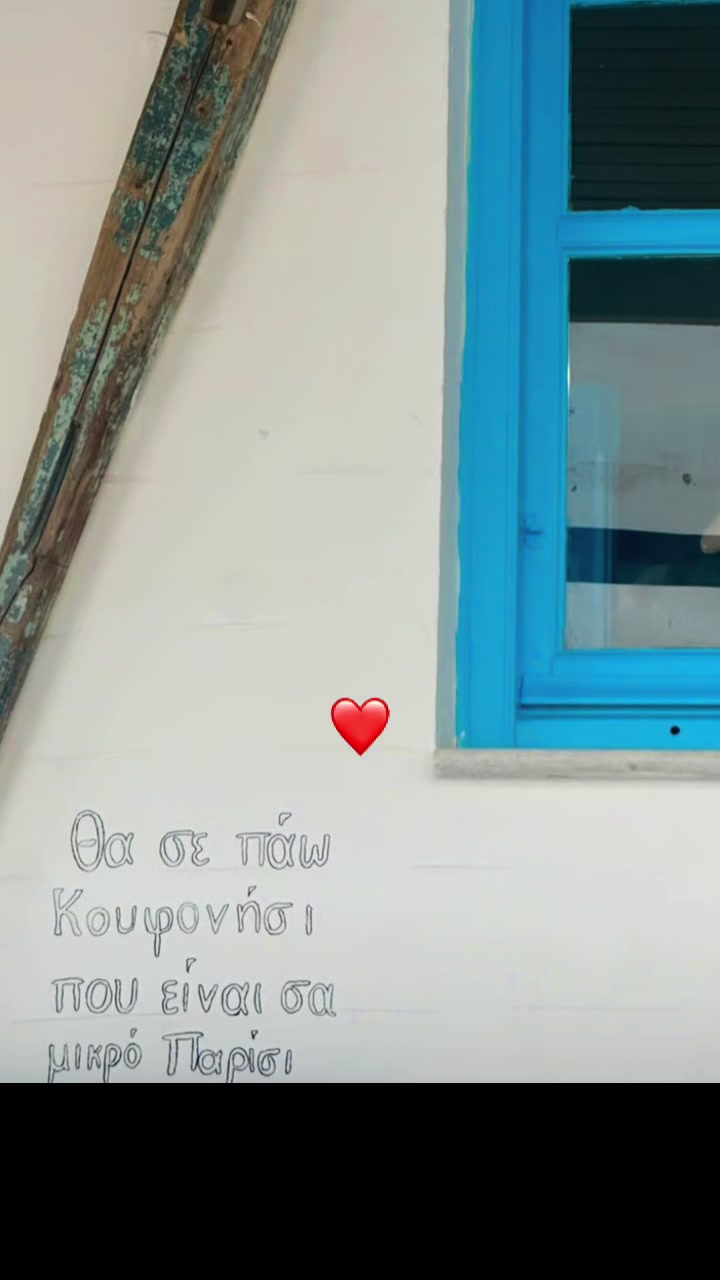 Θα σε πάω
Κουφονήσι
που είναι σα
μικρό Παρίσι